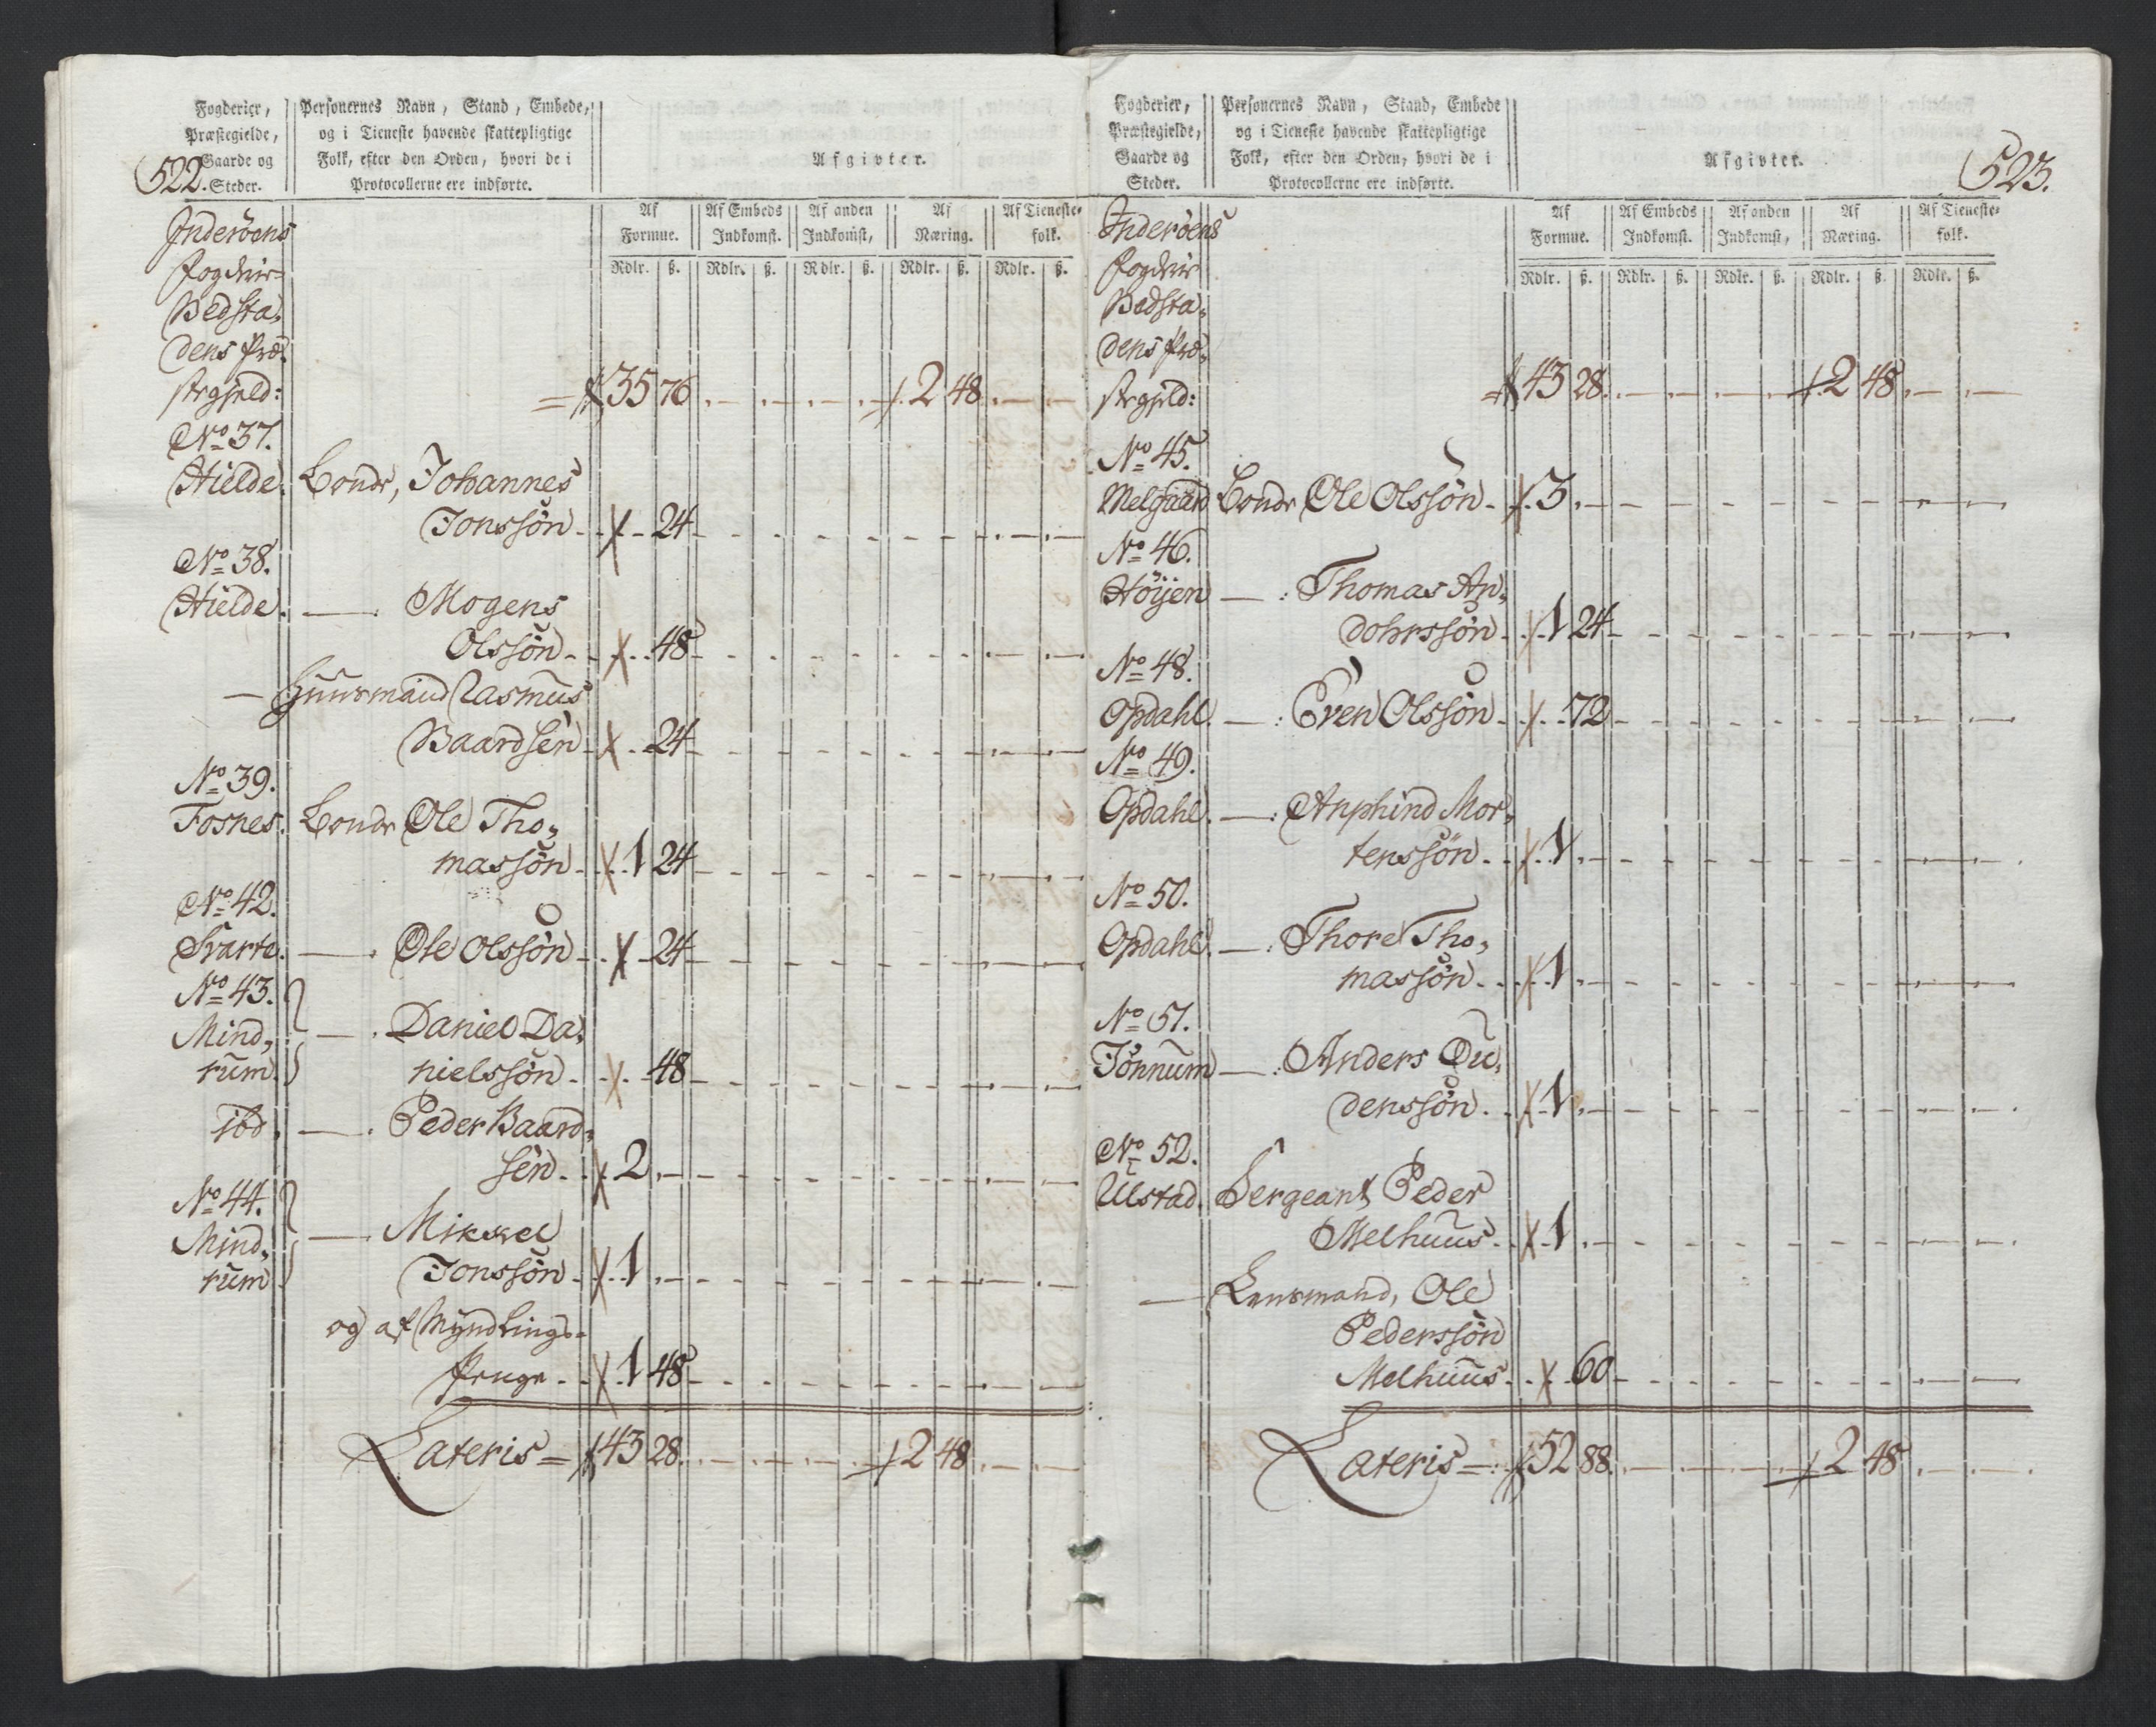 Fogderier, Præstegielde, Gaarde og Steder.
Personernes Navn, Stand, Embede, og i Tieneste havende skattepligtige Folk, efter den Orden, hvori de i Protocollerne ere indførte.
Afgivter.
522.
Af Formue. Af Embeds Indkomst. Af anden Indkomst, Af Næring. Af Tieneste- folk.
Rdlr. ß. Rdlr. ß. Rdlr. ß. Rdlr. ß. Rdlr. ß.
Inderöens
Fogderie
Bedsta,
dens Præ,
stegield: 35 76 2 48
No 37.
Hielde. Bonde, Johannes
Jonssön 24
No 38.
Hielde. — Mogens
Olssön 48
— Huusmand Rasmus
Baardsen 24
No 39.
Fosnes. Bonde Ole Tho,
massön 1 24
No 42.
Svarte. — Ole Olssön 24
No 43.
Mind, — Daniel Da,
rum nielssön 48
ibd. — Peder Baard,
sen 2 —
No 44.
Mind, — Mikkel
rum Jonssön 1 —
og af Myndlings-
Penge 1 48
Lateris = 43 28 2 48
Fogderier, Præstegielde, Gaarde og Steder.
Personernes Navn, Stand, Embede og i Tieneste havende skattepligtige Folk, efter den Orden, hvori de i Protocollerne ere indførte.
Afgivter.
523.
Af Formue. Af Embeds Indkomst. Af anden Indkomst, Af Næring. Af Tieneste- folk.
Rdlr. ß. Rdlr. ß. Rdlr. ß. Rdlr. ß. Rdlr. ß.
Inderöens
Fogderie
Bedsta,
dens Præ,
stegield: 43 28 2 48
No 45.
Melgaard Bonde Ole Olssön 3 —
No 46.
Höÿen — : Thomas An,
dohrssön 1 24
No 48.
Opdahl. — : Even Olssön 72
No 49.
Opdahl. — : Anphind Mor,
tenssön 1 —
No 50.
Opdahl. — : Thore Tho,
massön 1 —
No 51.
Tönnum — : Anders Ou,
denssön 1 —
No 52.
Ulstad. Sergeant Peder
Melhuus 1 —
— Lensmand, Ole
Pederssön
Melhuus 60
Lateris = 52 88 2 48